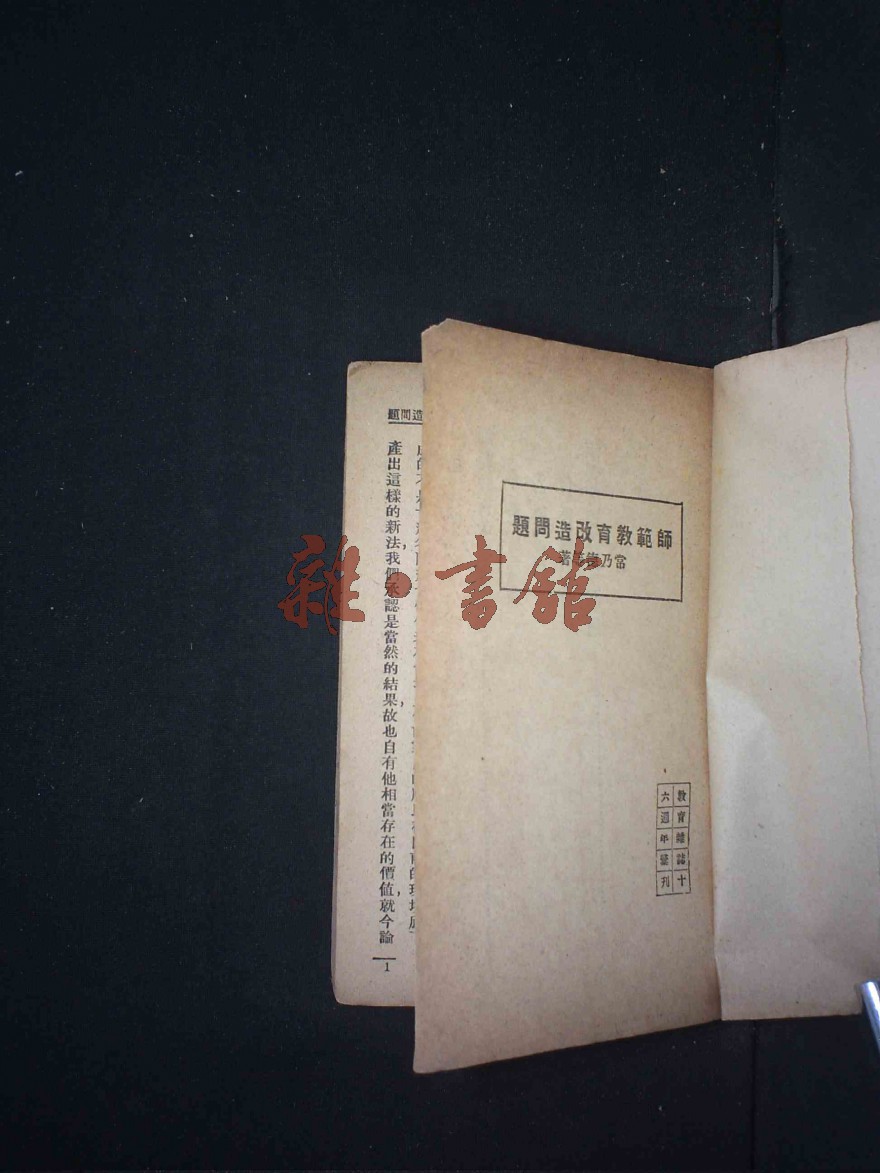 師範教育改造問題
常乃著
教育雜誌十
六週年彙刊
造問題
產出這樣的新法，我們承認是當然的結果，故也自有他相當存在的價値，就今論
1
雜·書館